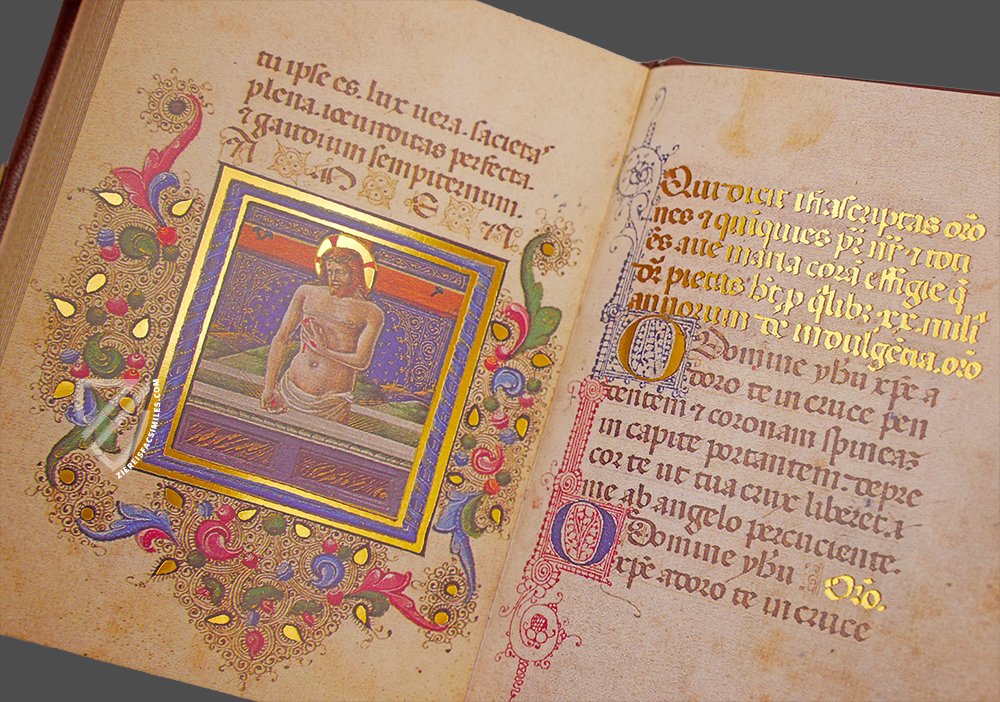 tu ipse es. lux uera. sacietas
plena. iocunditas perfecta.
⁊ gaudium sempiternum.
A M E N
Qui dicit ifrascriptas orõ
nes ⁊ quiq̃ uies pr̃ nr̃ ⁊ toti
es aue maria corã effigie
pietatis hr̃ p q̃libꝫ xx. mili
annorum de indulgẽcia. orõ
O Domine yhu xpe a
doro te in cruce pen
dentem ⁊ coronam spineaꝫ
in capite portantem. depre
cor te ut tua crux liberet
me ab angelo percuciente.
O Domine yhu Orõ.
xpe adoro te in cruce
ZIEREISFACSIMILES.COM